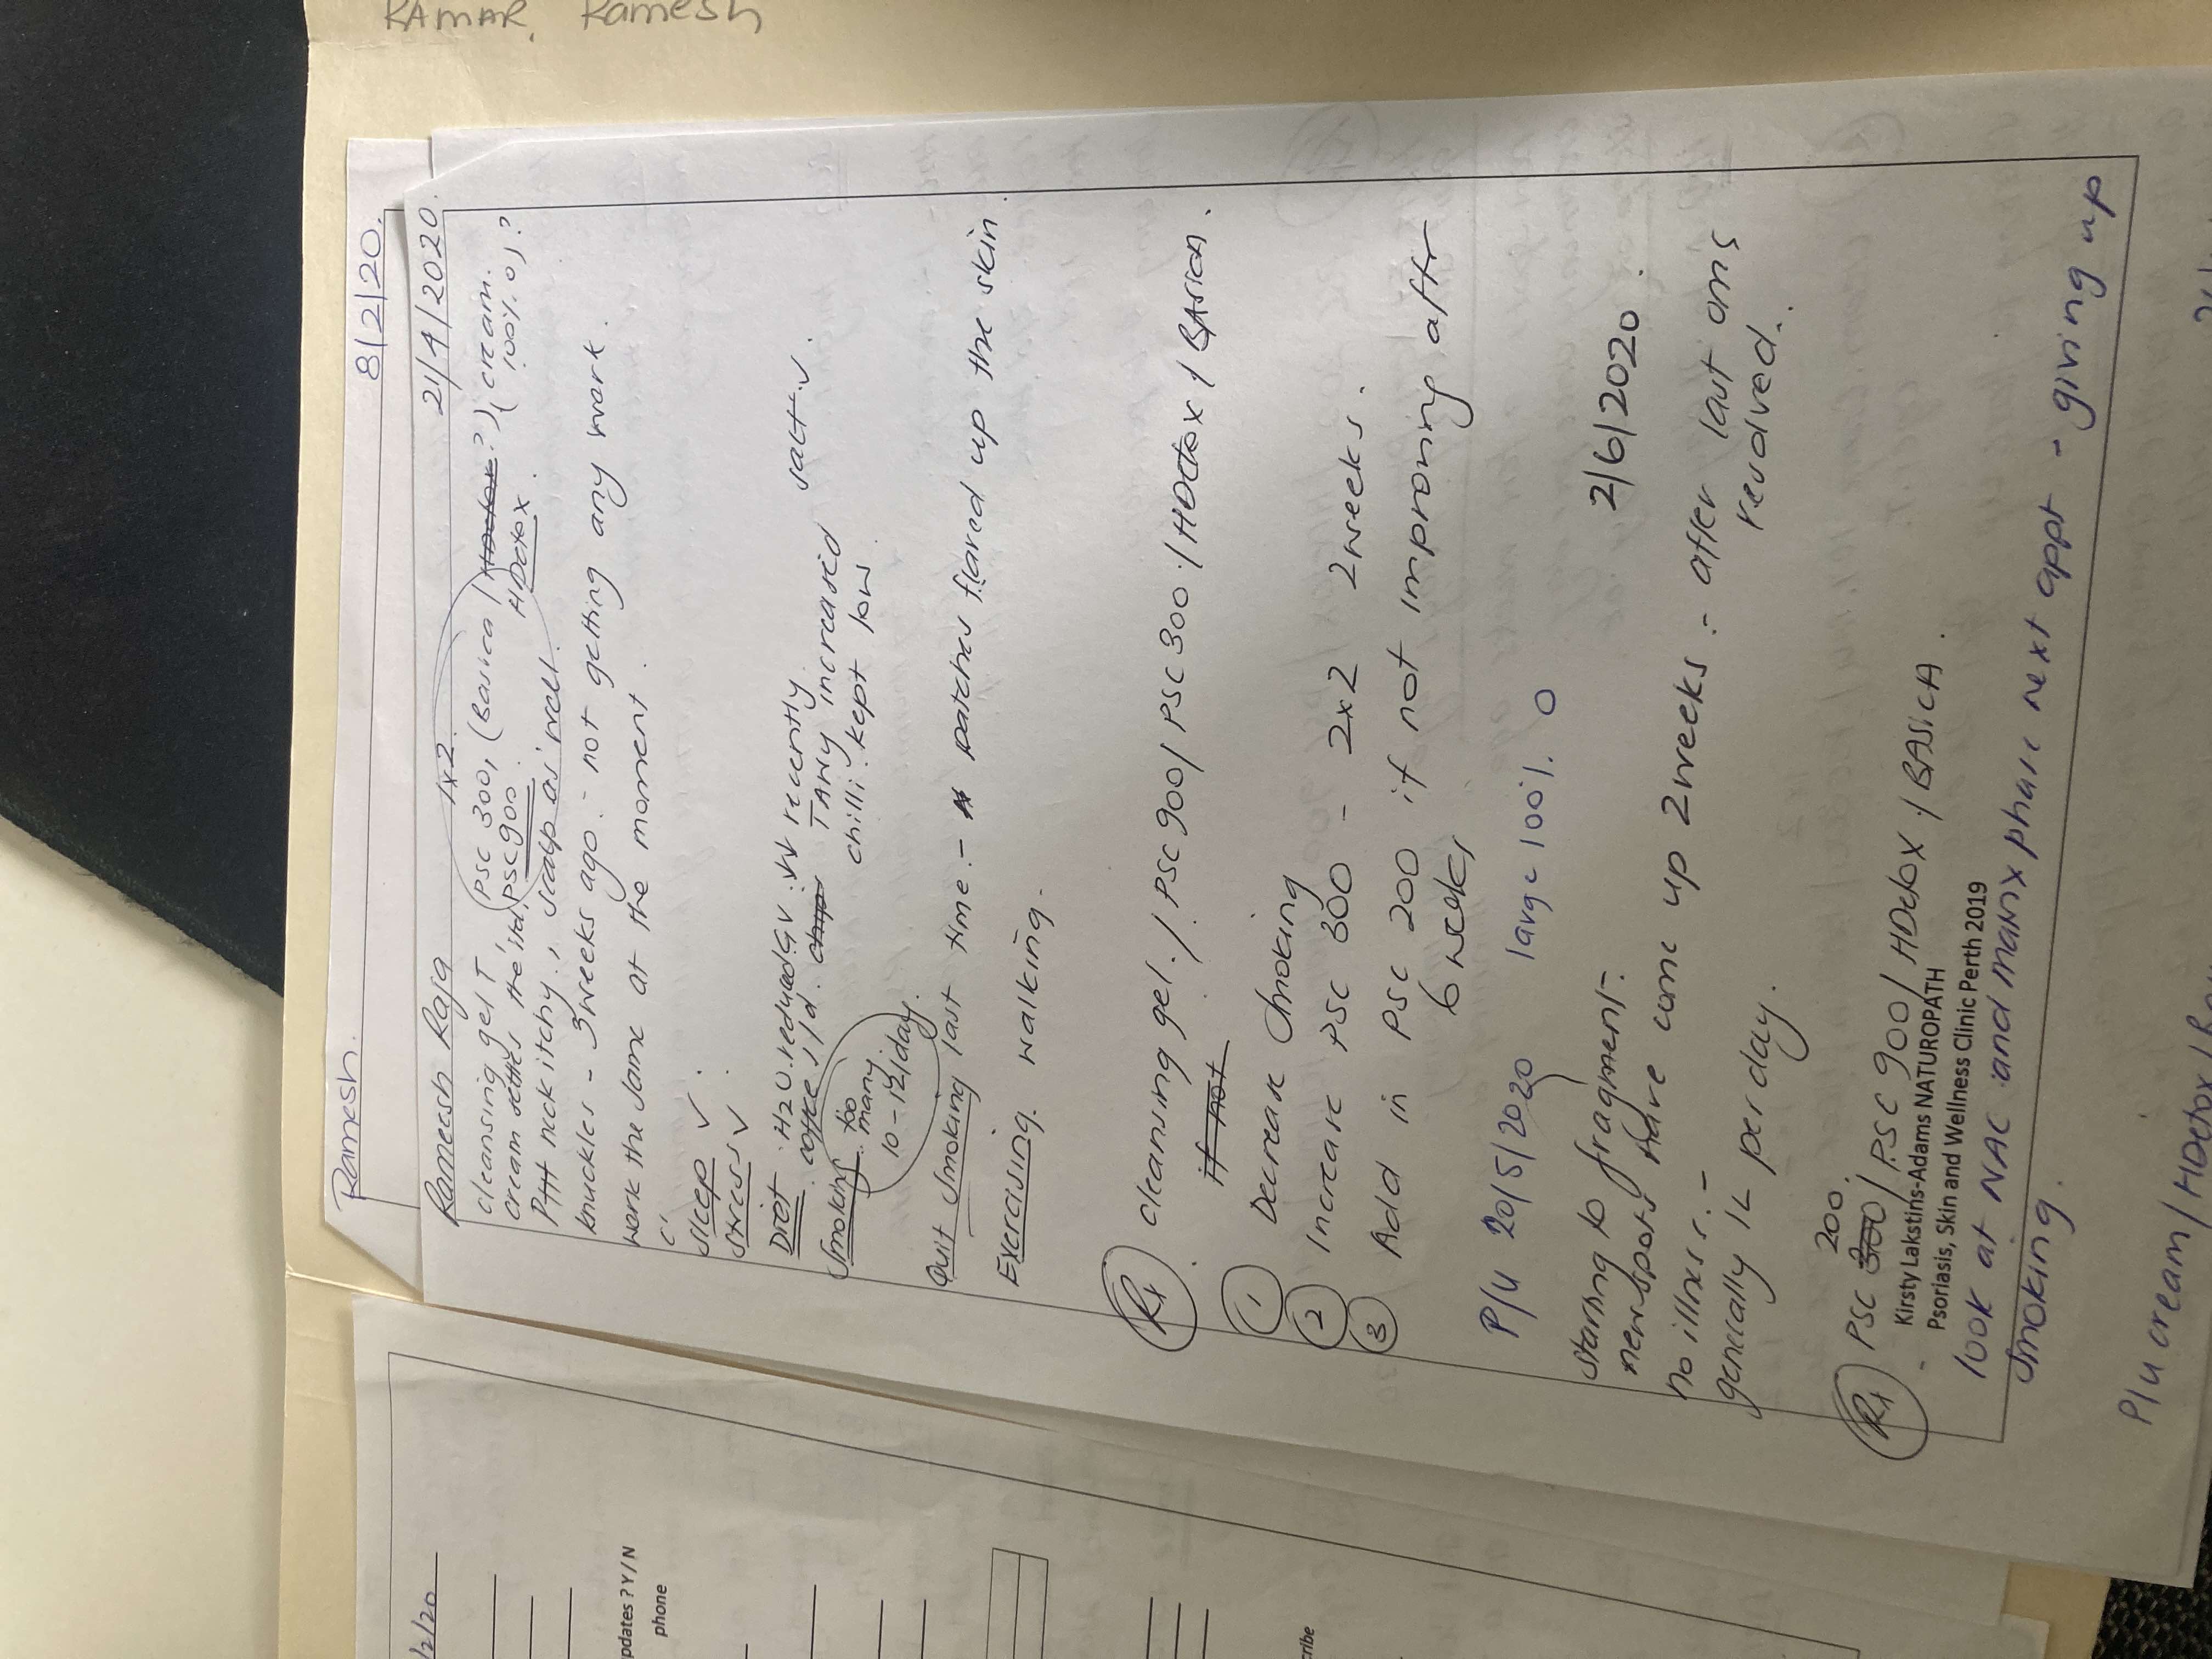 KAMAR. Ramesh
Ramesh. 8/2/20.
Ramesh Raja 1x2. 21/4/2020.
cleansing gel T (PSC 300, (Basica / HDetox?) (cream.
cream settles the itch, PSC900. HDetox. 100% 0)?
neck itchy, scalp as well.
knuckles - 3 weeks ago - not getting any work.
work the same at the moment.
sleep ✓.
stress ✓.
Diet. H2O. reduced. GV. VV recently salt ✓.
coffee 1/d. TAWY increased
Smoking. too many chilli. kept low
10-12/day.
Quit smoking last time. - patches flared up the skin.
Exercising. walking.
Rx cleansing gel. / PSC 900 / PSC 300. / HDetox / BASICA.
if not
① Decrease Smoking
② Increase PSC 300 - 2x2 2 weeks.
③ Add in PSC 200 if not improving aftr
6 weeks
P/U 20/5/2020 large 100%. O
2/6/2020.
starting to fragment.
new spots have come up 2 weeks. - after last ons
resolved..
no illness. -
generally 1L per day.
200.
Rx PSC 300 / PSC 900 / HDetox. / BASICA.
Kirsty Lakstins-Adams NATUROPATH
Psoriasis, Skin and Wellness Clinic Perth 2019
look at NAC and manx phase next appt - giving up
smoking.
P/u cream / HDetox /
/2/20
pdates ? Y / N
phone
cribe